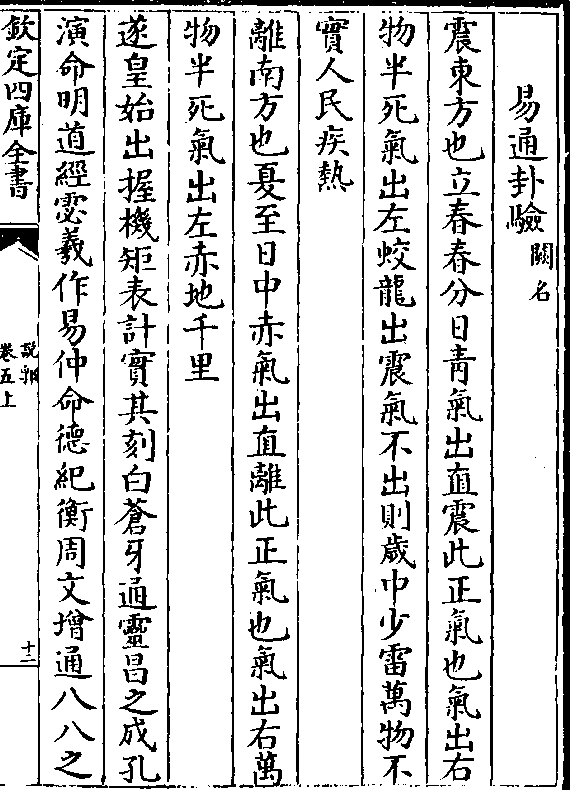 易通卦驗闕名
震東方也立春春分日青氣出直震此正氣也氣出右
物半死氣出左蛟龍出震氣不出則歲中少雷萬物不
實人民疾熱
離南方也夏至日中赤氣出直離此正氣也氣出右萬
物半死氣出左赤地千里
遂皇始出握機矩表計寘其刻白蒼牙通靈昌之成孔
演命明道經宓羲作易仲命德紀衡周文增通八八之
欽定四庫全書
說郛
卷五上
十二